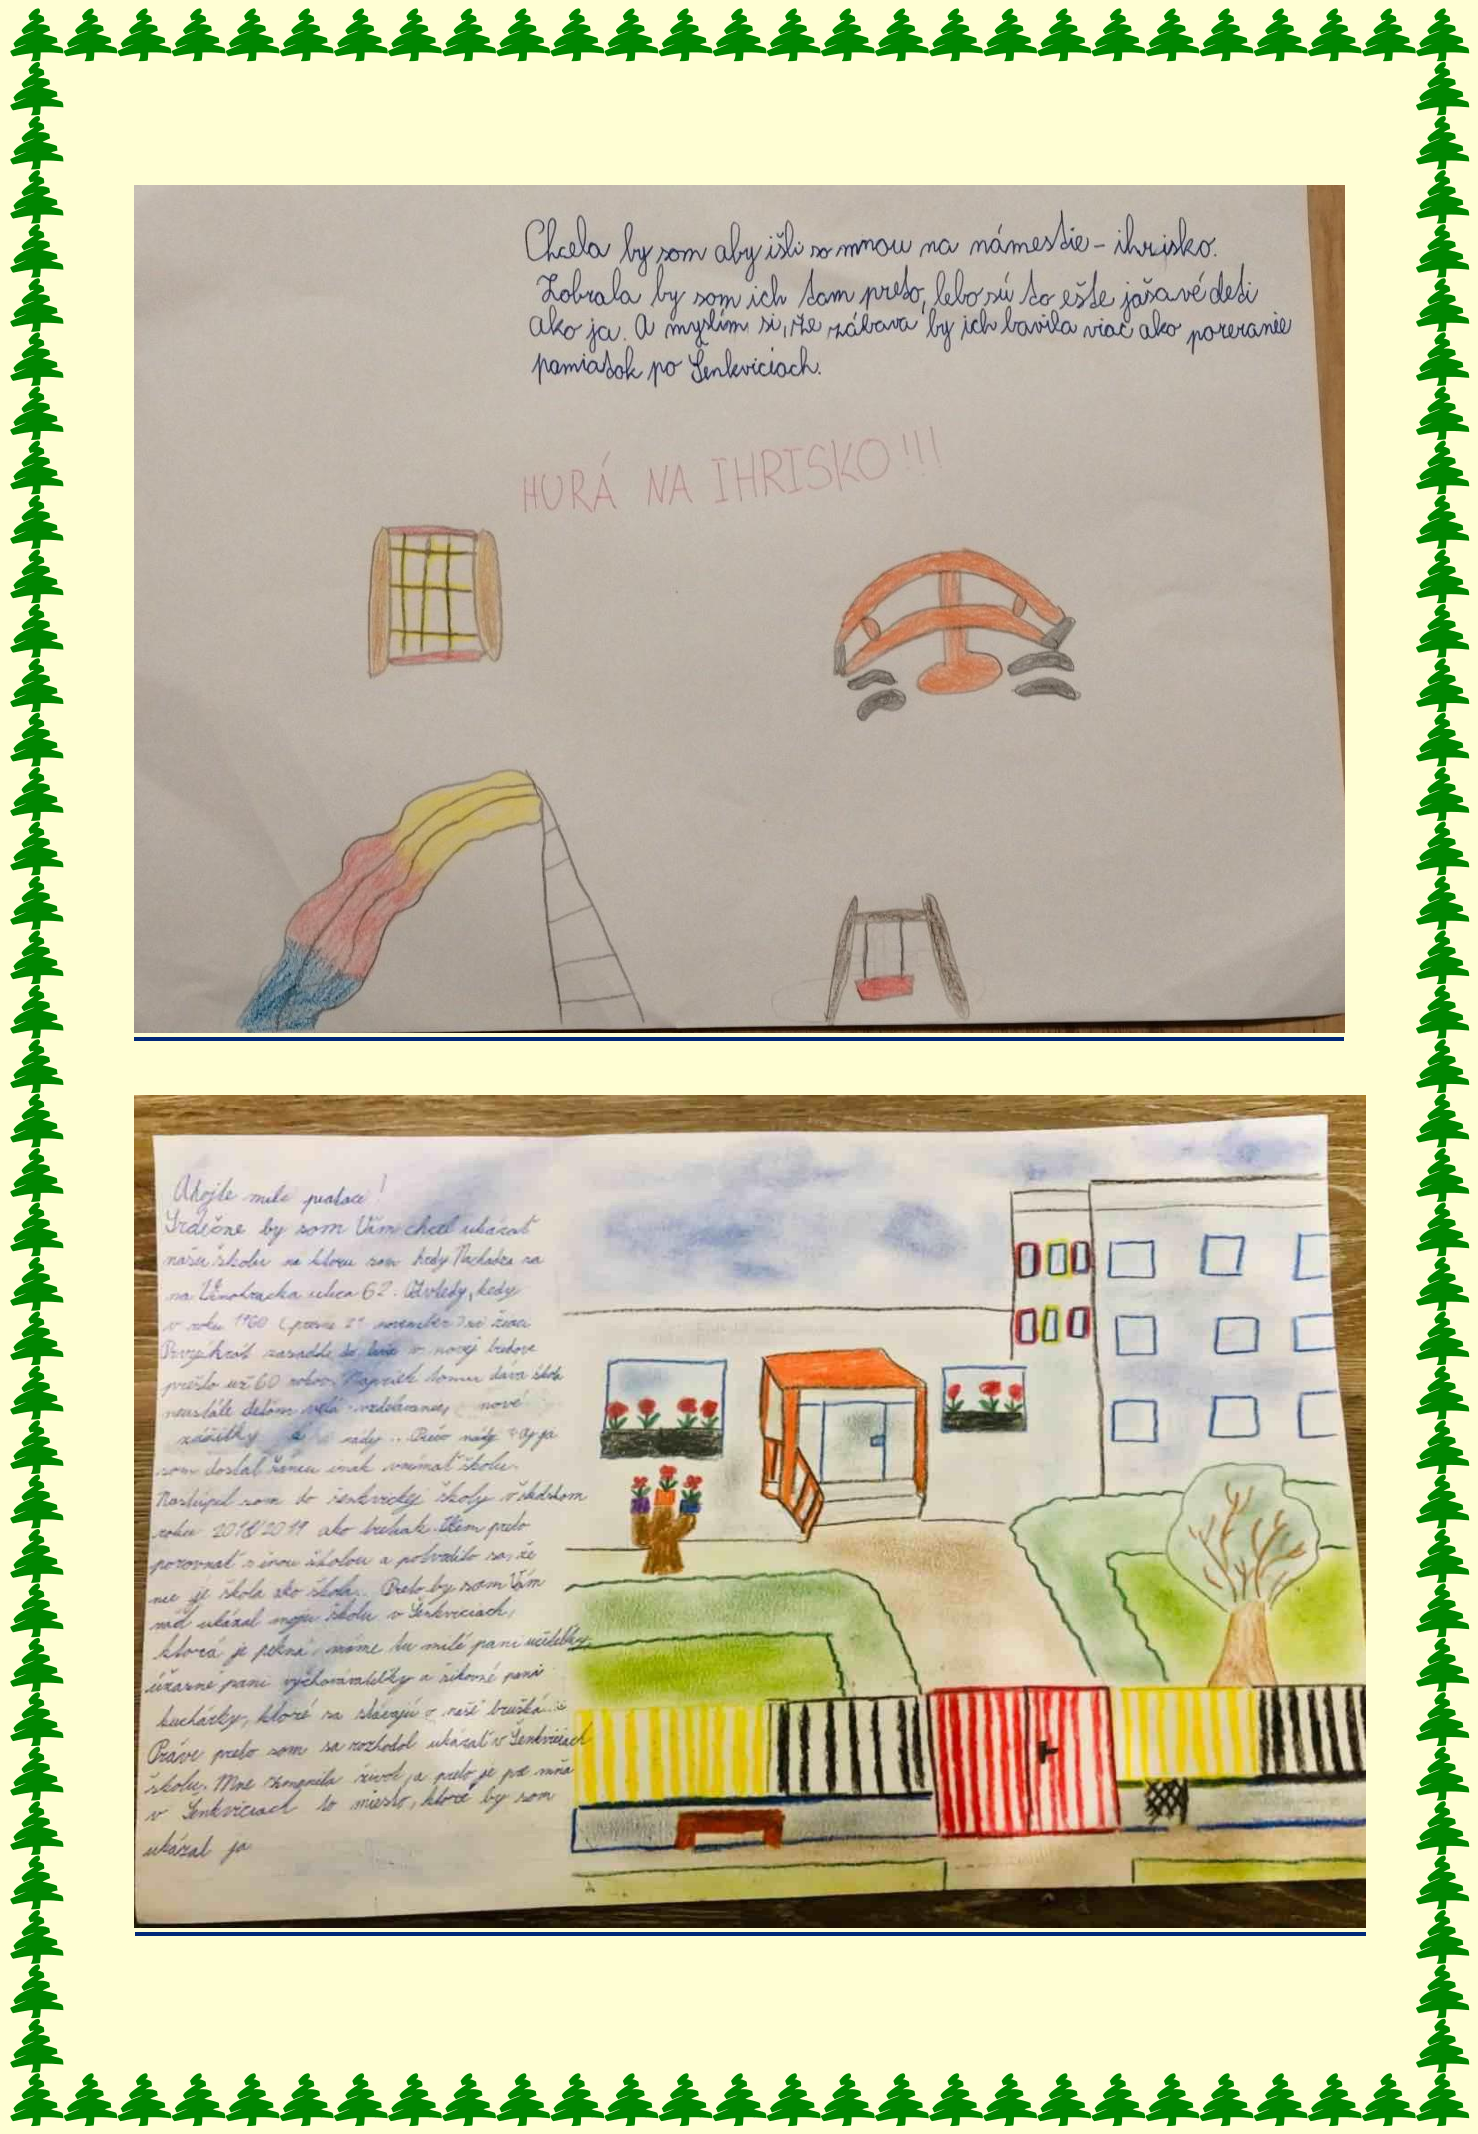 Chcela by som aby išli so mnou na námestie - ihrisko.
Zobrala by som ich tam preto, lebo sú to ešte jašavé deti
ako ja. A myslím si, že zábava by ich bavila viac ako pozeranie
pamiatok po Šenkviciach.
HURÁ NA IHRISKO!!!
Ahojte milí !
Srdečne by som Vám chcel ukázať
našu školu na ktorú som hrdý Nachádza sa
na Vinohradka ulica 62. Odvtedy, kedy
v roku 1960 ( 21 november) žiaci
Prvýkrát zasadli do lavíc v novej budove
prešlo už 60 rokov. Napriek tomu dáva škola
neustále deťom vzdelávanie, nové
zážitky a rady .. Preto aj ja
som dostal šancu inak vnímať školu.
Nastúpil som do šenkvickej školy v školskom
roku 2018/2019 ako tretiak. Viem preto
porovnať s inou školou a potvrdilo sa, že
nie je škola ako škola.. Preto by som Vám
rád ukázal moju školu v Šenkviciach,
ktorá je pekná, máme tu milé pani učiteľky,
úžasné pani vychovávateľky a šikovné pani
kuchárky, ktoré sa starajú o naše brušká...
Práve preto som sa rozhodol ukázať v Šenkviciach
školu. Mne zmenila život, a preto je pre mňa
v Šenkviciach to miesto, ktoré by som
ukázal ja